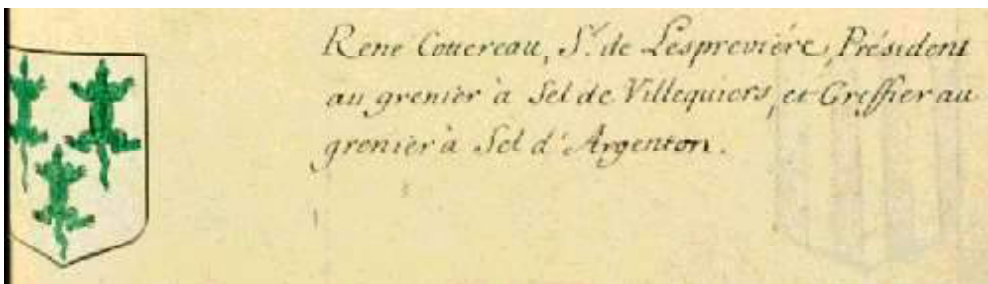 René Cottereau, S.r de Lesprevière, Président
au grenier à Sel de Villequiers, et Greffier au
grenier à Sel d'Argenton.